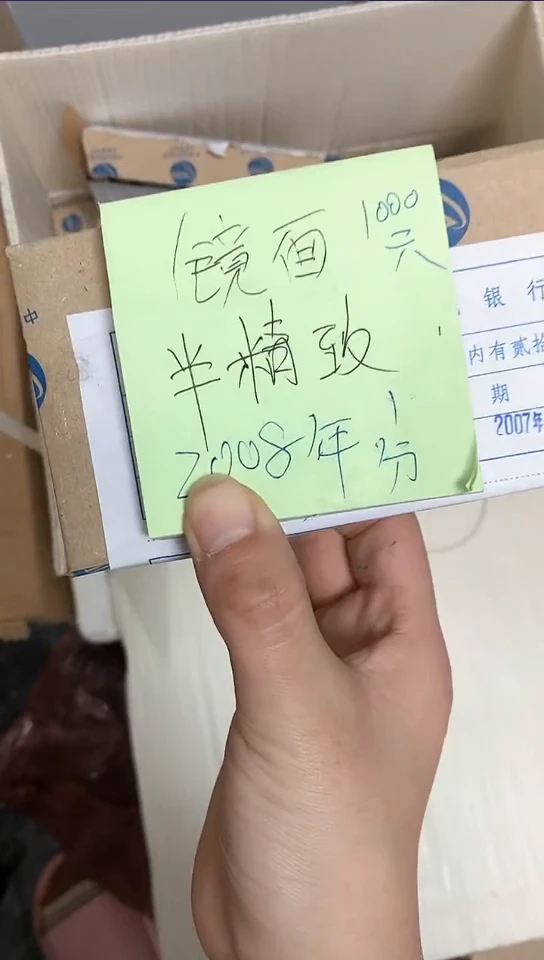 镜面 1000
元
半精致
2008年 1
分
中
银行
内有贰拾
期
2007年